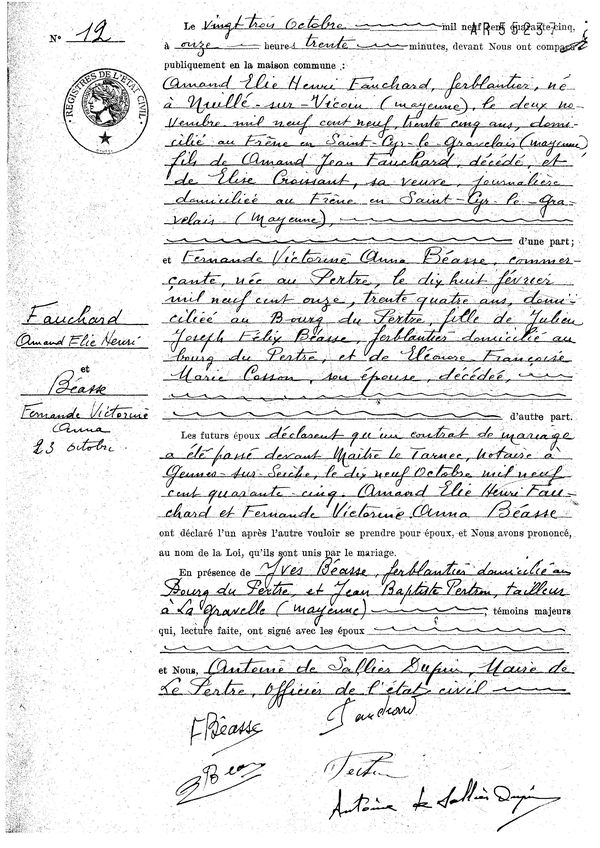 N° 12
REGISTRES DE L'ETAT CIVIL
Le vingt trois Octobre mil neuf cent quarante cinq,
AR 55237
à onze heures trente minutes, devant Nous ont comparu
publiquement en la maison commune :
Amand Elie Henri Fauchard, ferblantier, né
à Nuillé-sur-Vicoin (mayenne), le deux no-
vembre mil neuf cent neuf, trente cinq ans, domi-
cilié au Frêne en Saint-Cyr-le-Gravelais (mayenne)
fils de Amand Jean Fauchard, décédé, et
de Elise Croissant, sa veuve, journalière
domiciliée au Frêne en Saint-Cyr-le-Gra-
velais (Mayenne),
d'une part ;
et Fernande Victorine Anna Béasse, commer-
çante, née au Pertre, le dix huit février
mil neuf cent onze, trente quatre ans, domi-
ciliée au Bourg du Pertre, fille de Julien
Joseph Félix Béasse, ferblantier domicilié au
bourg du Pertre, et de Eléonore Françoise
Marie Cosson, son épouse, décédée
d'autre part.
Fauchard
Amand Elie Henri
et
Béasse
Fernande Victorine
Anna
23 octobre.
Les futurs époux déclarent qu'un contrat de mariage
a été passé devant Maître le Tarnec, notaire à
Gennes-sur-Seiche, le dix neuf Octobre mil neuf
cent quarante-cinq. Amand Elie Henri Fau-
chard et Fernande Victorine Anna Béasse
ont déclaré l'un après l'autre vouloir se prendre pour époux, et Nous avons prononcé,
au nom de la Loi, qu'ils sont unis par le mariage.
En présence de Yves Béasse, ferblantier domicilié au
Bourg du Pertre, et Jean Baptiste Pertron, tailleur
à La Gravelle (mayenne), témoins majeurs
qui, lecture faite, ont signé avec les époux
et Nous, Antoine de Salliès Dupin, Maire de
Le Pertre, officier de l'état civil
F Béasse Fauchard
Antoine de Salliès Dupin